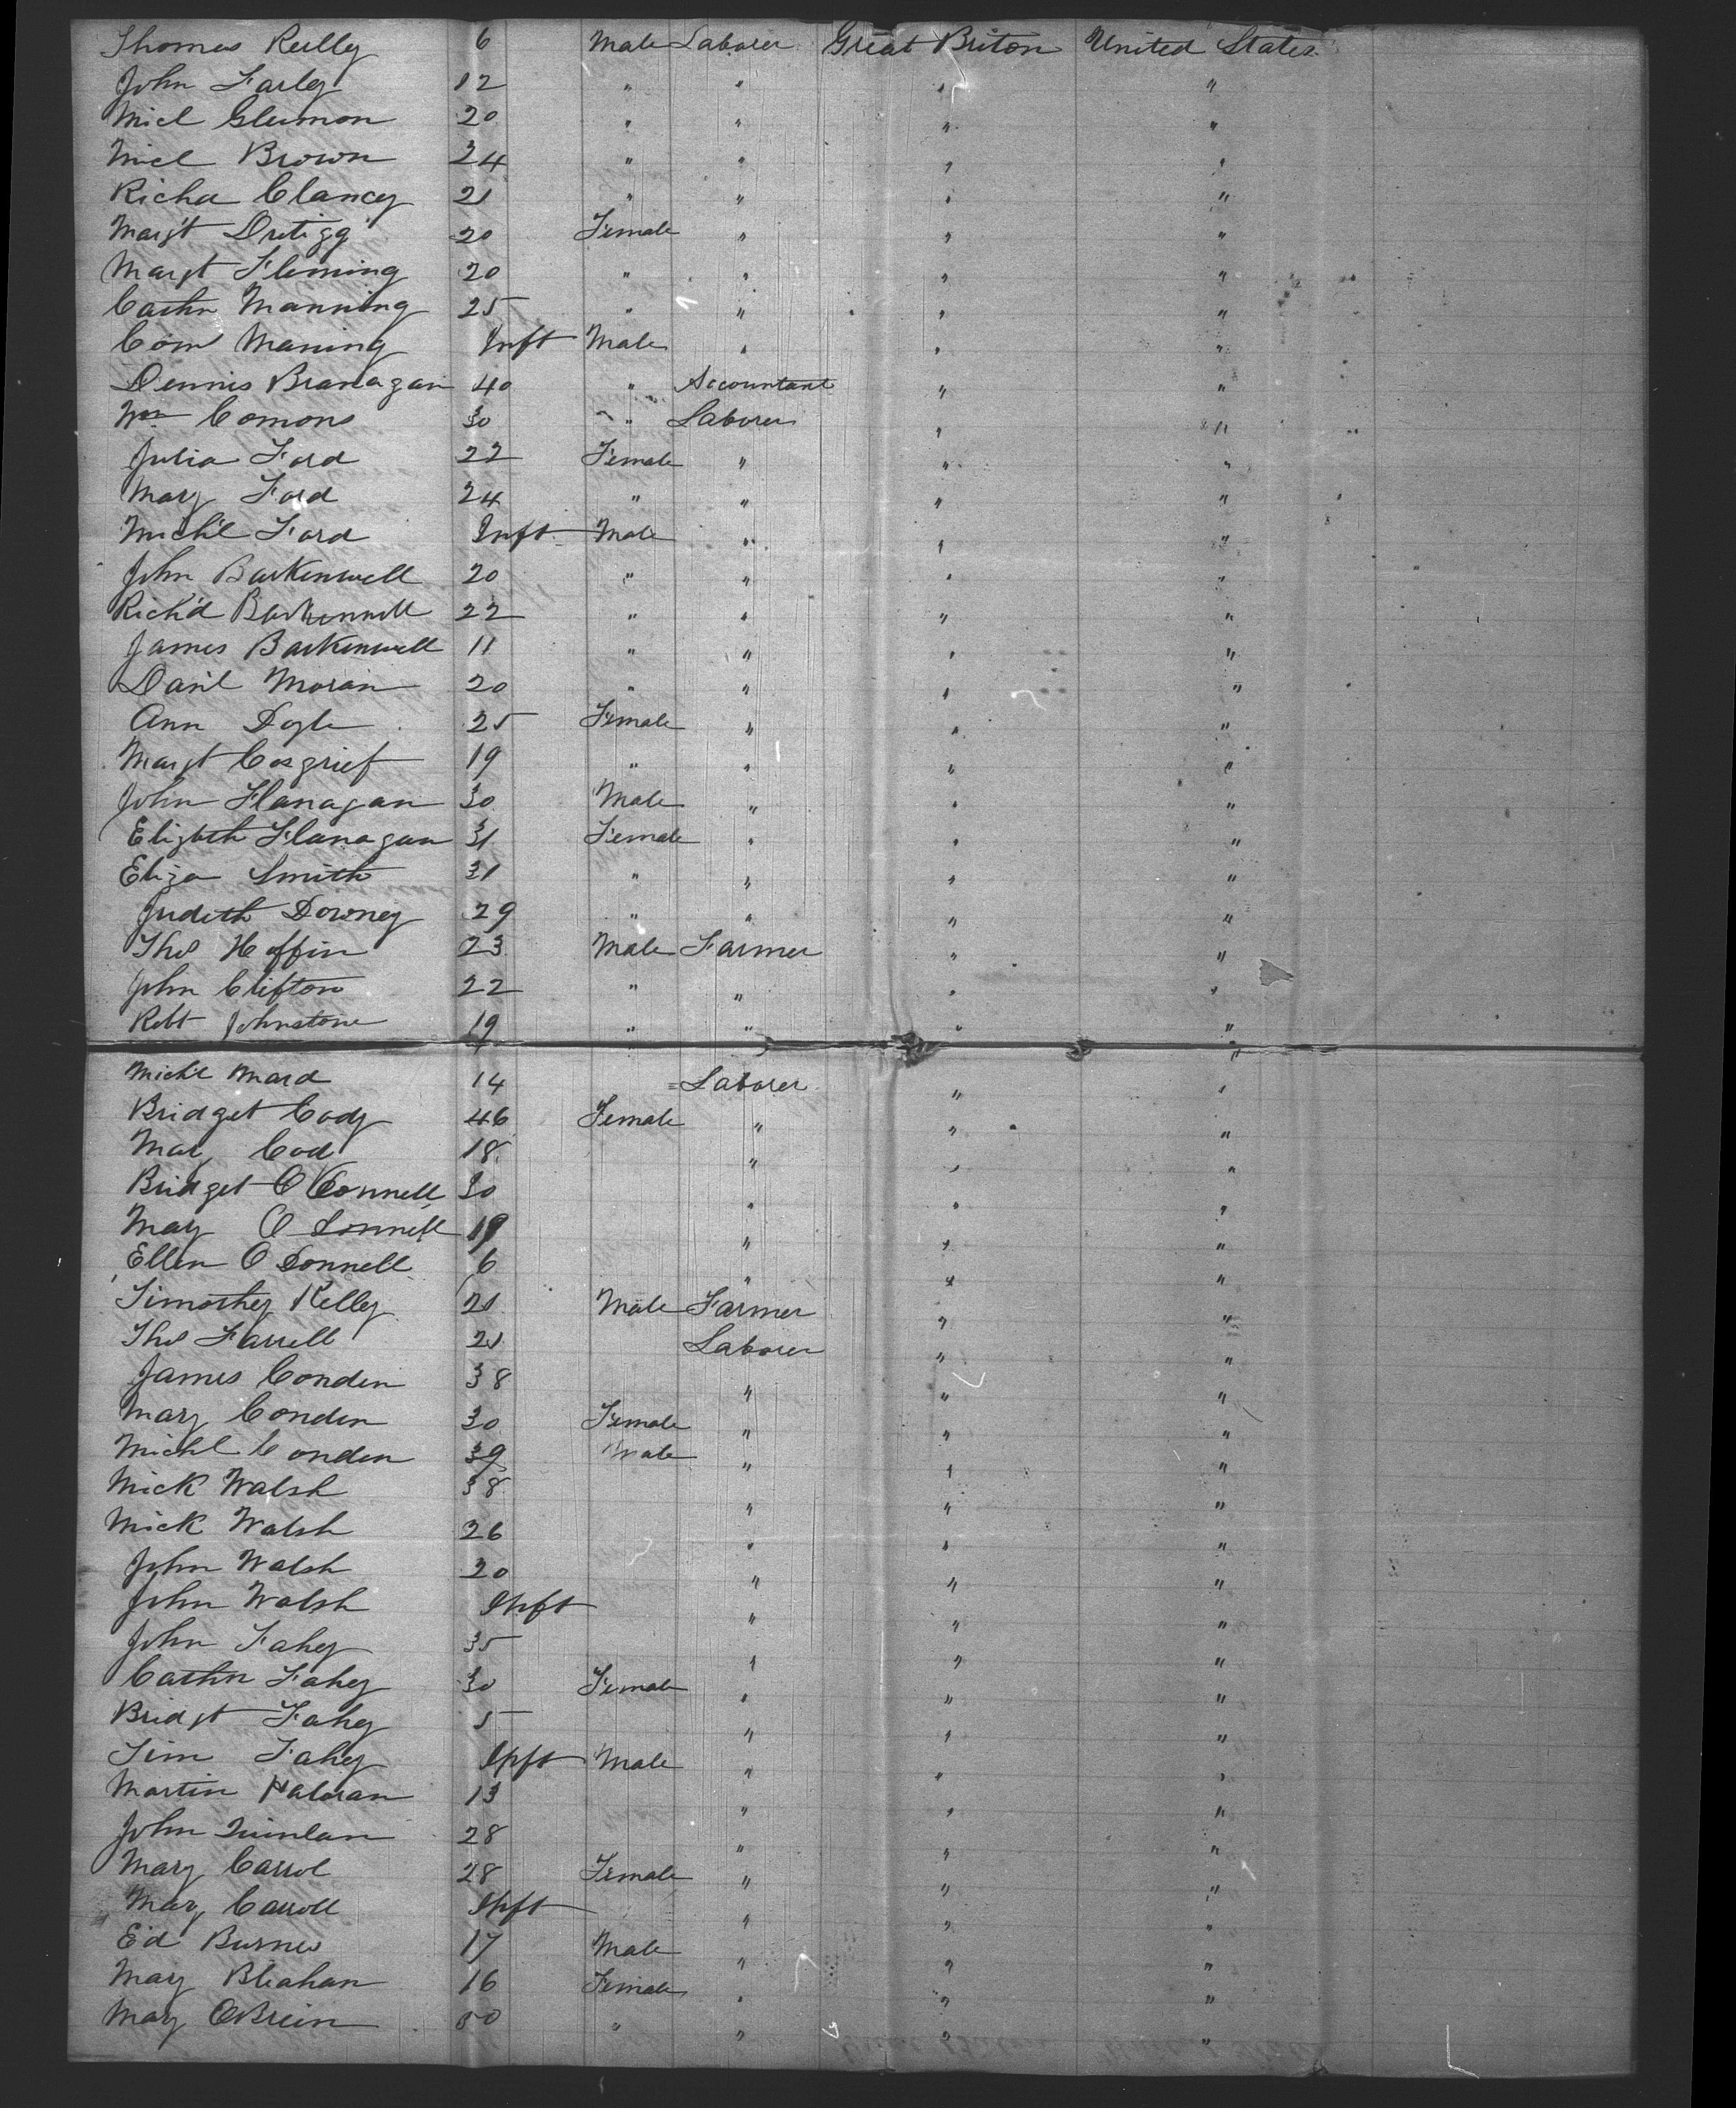 Thomas Reilly 6 Male Laborer Great Briton United States
John Farley 12 " " " "
Micl Glennon 20 " " " "
Micl Brown 24 " " " "
Richd Clancy 21 " " " "
Margt 20 Female " " "
Margt Fleming 20 " " " "
Cathn Manning 25 " " " "
Corn Maning Inft Male " " "
Dennis Branagan 40 " Accountant " "
Wm Comons 30 " Laborer " "
Julia Ford 22 Female " " "
Mary Ford 24 " " " "
Mich'l Ford Inft Male " " "
John Barkenwell 20 " " " "
Rich'd Barkenwell 22 " " " "
James Barkenwell 11 " " " "
Dan'l Moran 20 " " " "
Ann Doyle 25 Female " " "
Margt Cosgrief 19 " " " "
John Flanagan 30 Male " " "
Elizbeth Flanagan 31 Female " " "
Eliza Smith 31 " " " "
Judith Downey 29 " " " "
Thos Heffin 23 Male Farmer " "
John Clifton 22 " " " "
Robt Johnstone 19 " " " "
Mich'l Ward 14 Laborer " "
Bridget Cody 46 Female " " "
Mary Cod 18 " " "
Bridget O Connell 30 " " "
Mary O Donnell 19 " " "
Ellen O Donnell 6 " " "
Timothey Kelley 21 Male Farmer " "
Thos Farrell 21 Laborer " "
James Conden 38 " " "
Mary Conden 30 Female " " "
Michl Conden 39 Male " " "
Mick Walsh 38 " " "
Mick Walsh 26 " " "
John Walsh 20 " " "
John Walsh Inft " " "
John Fahey 35 " " "
Cathn Fahey 30 Female " " "
Bridgt Fahey 5 " " "
Tim Fahey Inft Male " " "
Martin Haloran 13 " " "
John Quinlan 28 " " "
Mary Carrol 28 Female " " "
Mary Carroll Inft " " "
Ed Burnes 17 Male " " "
Mary Bleahan 16 Female " " "
Mary OBrein 50 " " " "